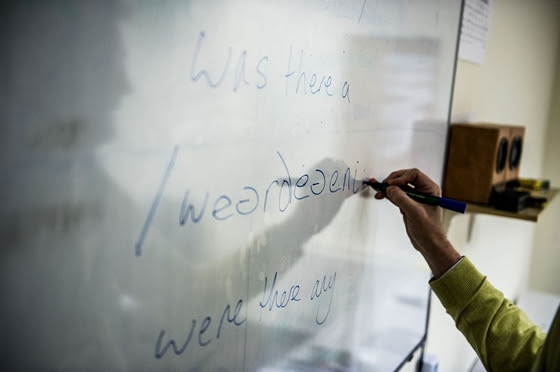 Was there a
/weərðeəeni
were there any